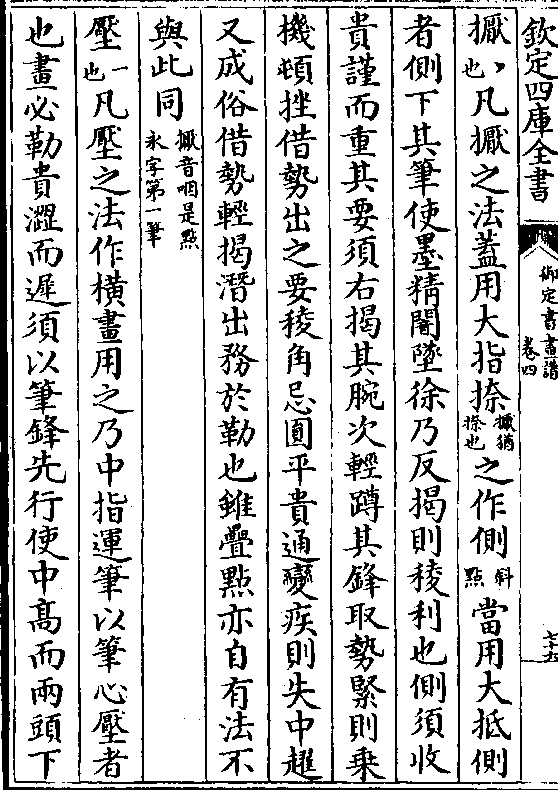 欽定四庫全書
御定書畫譜
卷四
擫丶也凡擫之法蓋用大指捺擫猶捺也之作側斜點當用大抵側
者側下其筆使墨精闇墜徐乃反揭則稜利也側須收
貴謹而重其要須右揭其腕次輕蹲其鋒取勢緊則乗
機頓挫借勢出之要稜角忌圓平貴通變疾則失中遲
又成俗借勢輕揭潛出務於勒也雖疊點亦自有法不
與此同擫音咽是點永字第一筆
壓一也凡壓之法作橫畫用之乃中指運筆以筆心壓者
也畫必勒貴澀而遲須以筆鋒先行使中髙而兩頭下